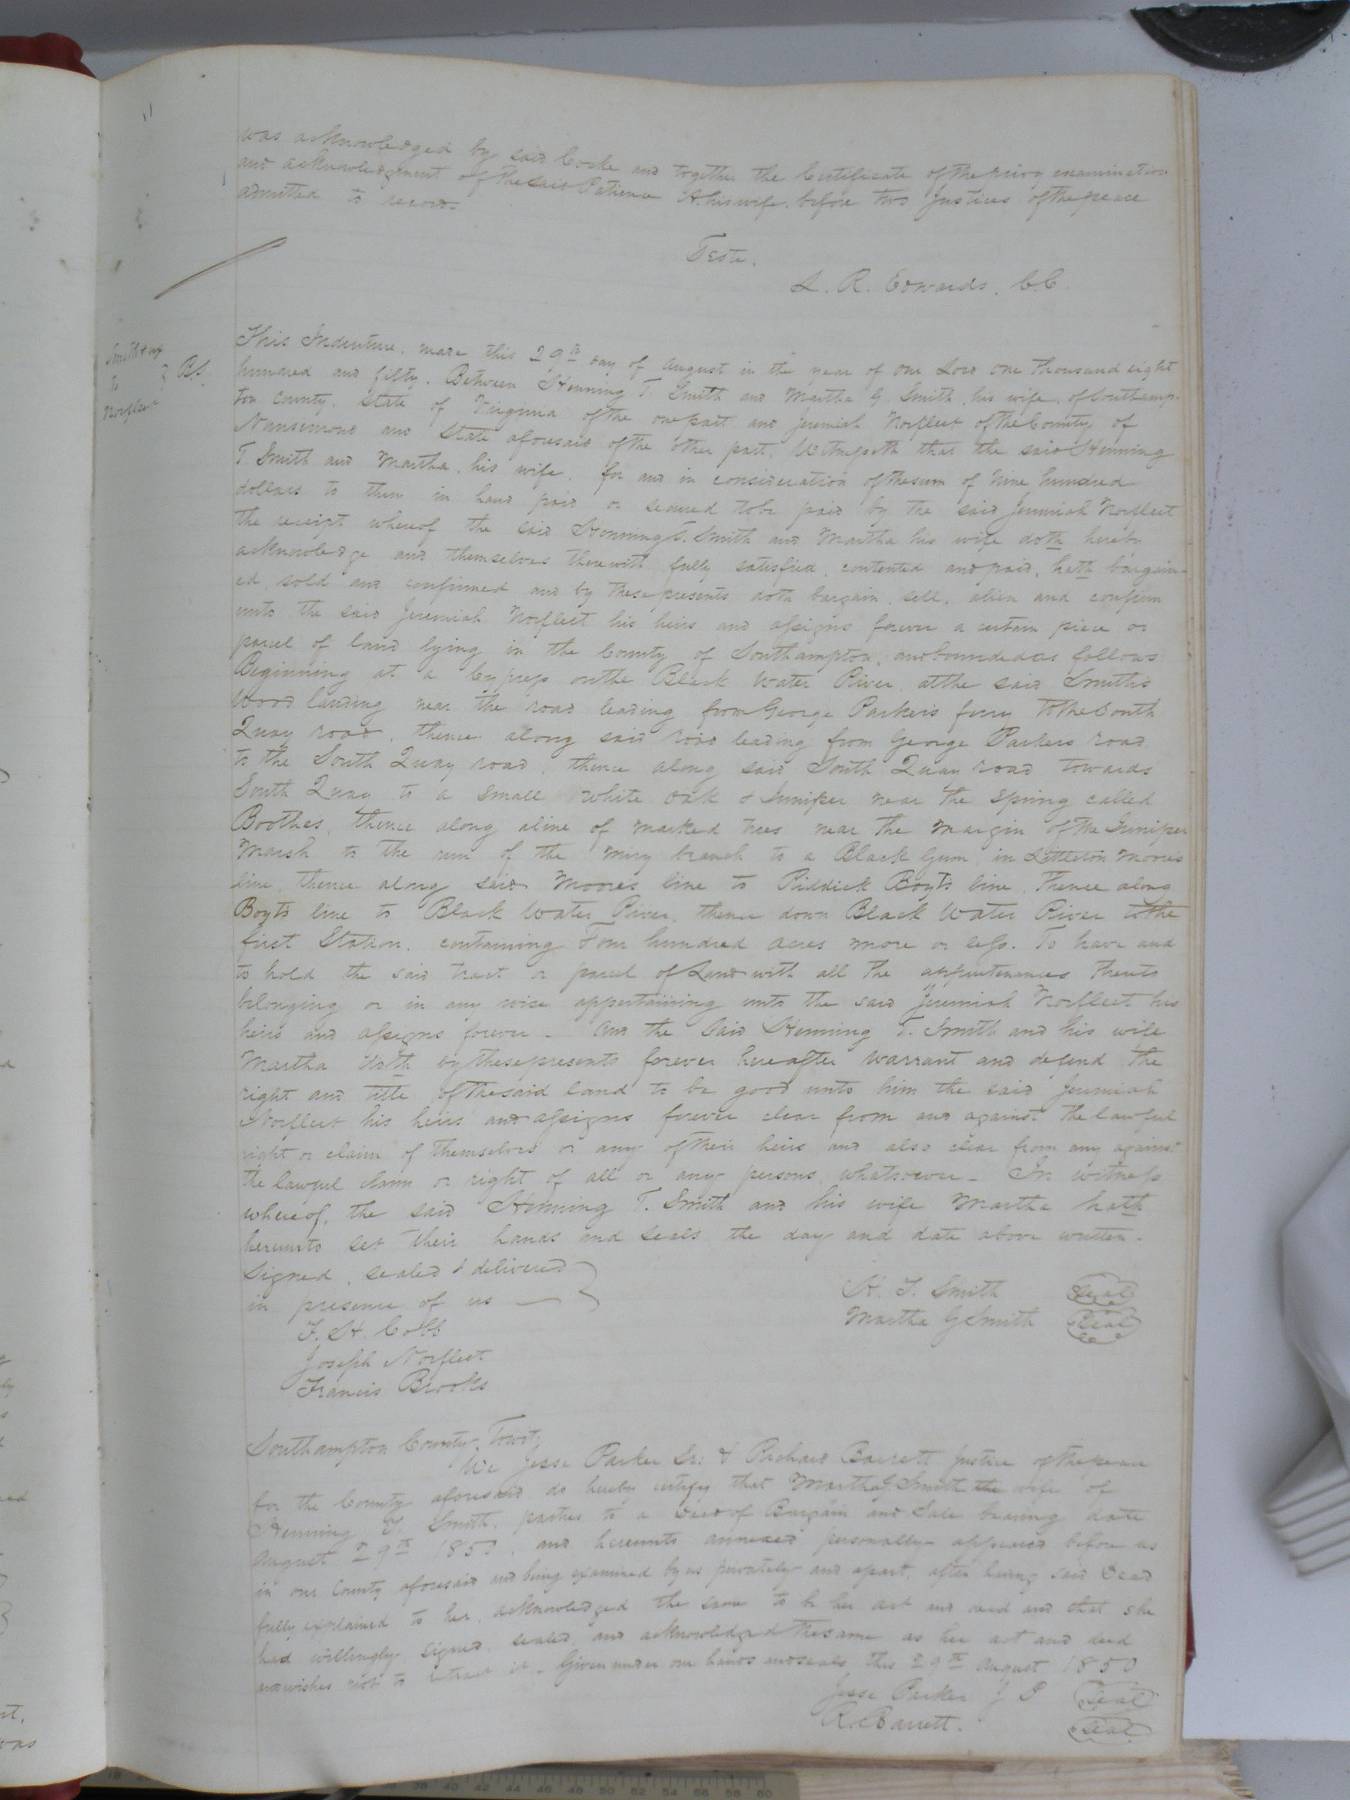 was acknowledged by said Cocke and together the Certificate of the privy examination
and acknowledgment of the said Patience A. his wife, before two Justices of the peace
admitted to record.
Teste.
L. R. Edwards, C.C.
Smith & ux
to
Norfleet
} BS.
This Indenture, made this 29th day of August in the year of our Lord one thousand eight
hundred and fifty. Between Henning T. Smith and Martha G. Smith, his wife, of Southamp-
ton County, State of Virginia of the one part and Jeremiah Norfleet of the County of
Nansemond and State aforesaid of the other part, Witnesseth that the said Henning
T. Smith and Martha, his wife, for and in consideration of the sum of Nine hundred
dollars to them in hand paid or secured to be paid by the said Jeremiah Norfleet
the receipt whereof the said Henning T. Smith and Martha his wife doth hereby
acknowledge and themselves therewith fully satisfied, contented and paid, hath bargain-
ed sold and confirmed and by these presents doth bargain, sell, alien and confirm
unto the said Jeremiah Norfleet his heirs and assigns forever a certain piece or
parcel of land lying in the County of Southampton, and bounded as follows
Beginning at a Cypress on the Black Water River, at the said Smith's
Wood landing near the road leading from George Parker's ferry to the South
Quay road, thence along said road leading from George Parkers road
to the South Quay road, thence along said South Quay road towards
South Quay to a small white oak & Juniper near the spring called
Boothes, thence along a line of marked trees near the margin of the Juniper
Marsh to the run of the Miry branch to a Black Gum in Littleton Moore's
line, thence along said Moores line to Riddick Boyt's line, Thence along
Boyt's line to Black Water River, thence down Black Water River to the
first Station, containing Four hundred acres more or less. To have and
to hold the said tract or parcel of Land with all the appurtenances thereto
belonging or in any wise appertaining unto the said Jeremiah Norfleet his
heirs and assigns forever - And the said Henning T. Smith and his wife
Martha doth by these presents forever hereafter warrant and defend the
right and title of the said land to be good unto him the said Jeremiah
Norfleet his heirs and assigns forever clear from and against the lawful
right or claim of themselves or any of their heirs and also clear from any against
the lawful claim or right of all or any persons whatsoever - In witness
whereof, the said Henning T. Smith and his wife Martha hath
hereunto set their hands and seals the day and date above written.
Signed, sealed & delivered }
in presence of us
H. T. Smith Seal
Martha G Smith Seal
F. H. Cobb
Joseph Norfleet
Francis Brooks
Southampton County, Towit,
We Jesse Parker Sr. & Richard Barrett Justice of the peace
for the County aforesaid do hereby certify that Martha G. Smith the wife of
Henning T. Smith, parties to a Deed of Bargain and Sale bearing date
August 29th 1850, and hereunto annexed personally appeared before us
in our County aforesaid and being examined by us privately and apart, after having said Deed
fully explained to her, acknowledged the same to be her act and deed and that she
had willingly signed, sealed, and acknowledged the same as her act and deed
and wishes not to retract it - Given under our hands and seals this 29th August 1850
Jesse Parker J P Seal
R. Barrett. Seal